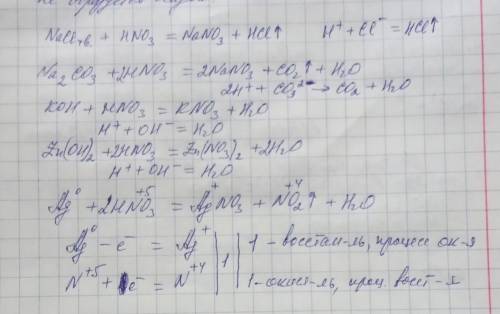 не образуется
NaCl тв. + HNO₃ = NaNO₃ + HCl↑ H⁺ + Cl⁻ = HCl↑
Na₂CO₃ + 2HNO₃ = 2NaNO₃ + CO₂↑ + H₂O
2H⁺ + CO₃²⁻ → CO₂ + H₂O
KOH + HNO₃ = KNO₃ + H₂O
H⁺ + OH⁻ = H₂O
Zn(OH)₂ + 2HNO₃ = Zn(NO₃)₂ + 2H₂O
H⁺ + OH⁻ = H₂O
Ag⁰ + 2HN⁺⁵O₃ = Ag⁺NO₃ + N⁺⁴O₂↑ + H₂O
Ag⁰ - e⁻ = Ag⁺ | 1 | 1 - восстан-ль, процесс ок-я
N⁺⁵ + 1e⁻ = N⁺⁴ | 1 - окист-ль, проц. восст-я